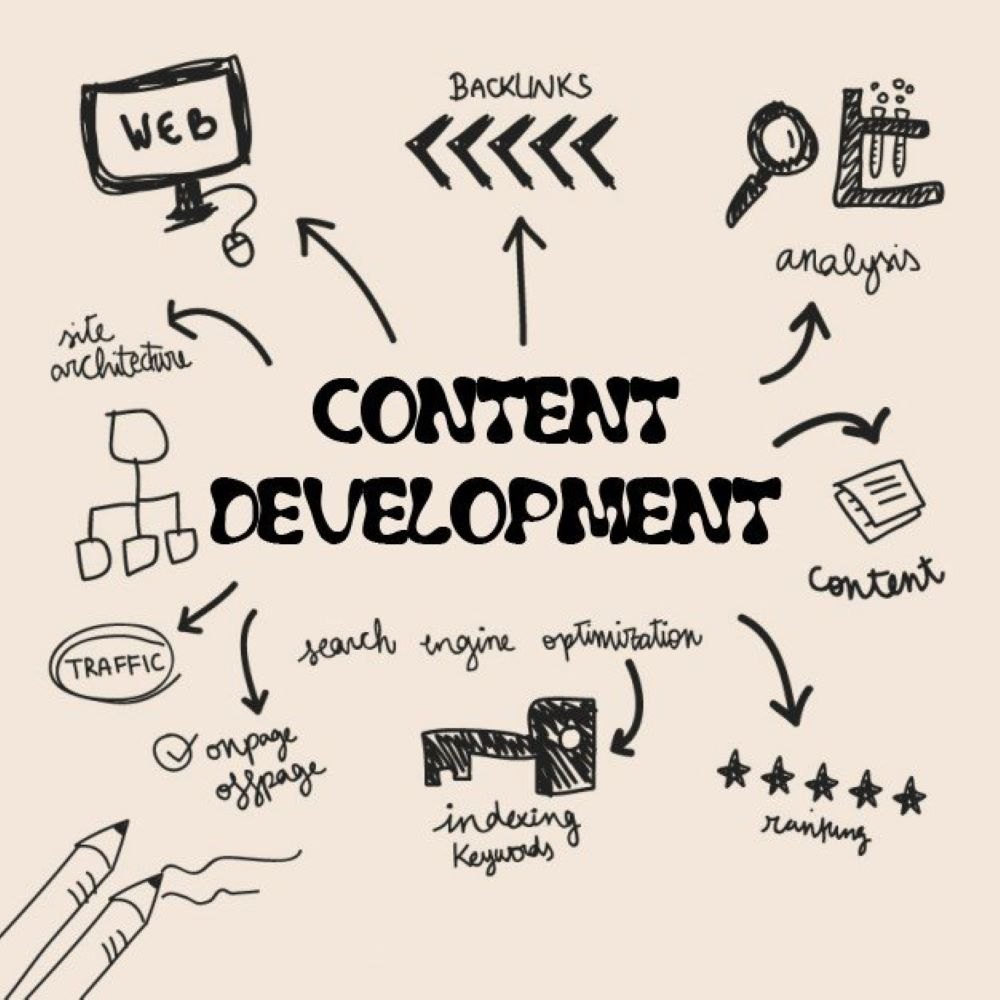 WEB
BACKLINKS
analysis
site
architecture
CONTENT
DEVELOPMENT
content
TRAFFIC
search engine optimization
onpage
offpage
indexing
Keywords
ranking